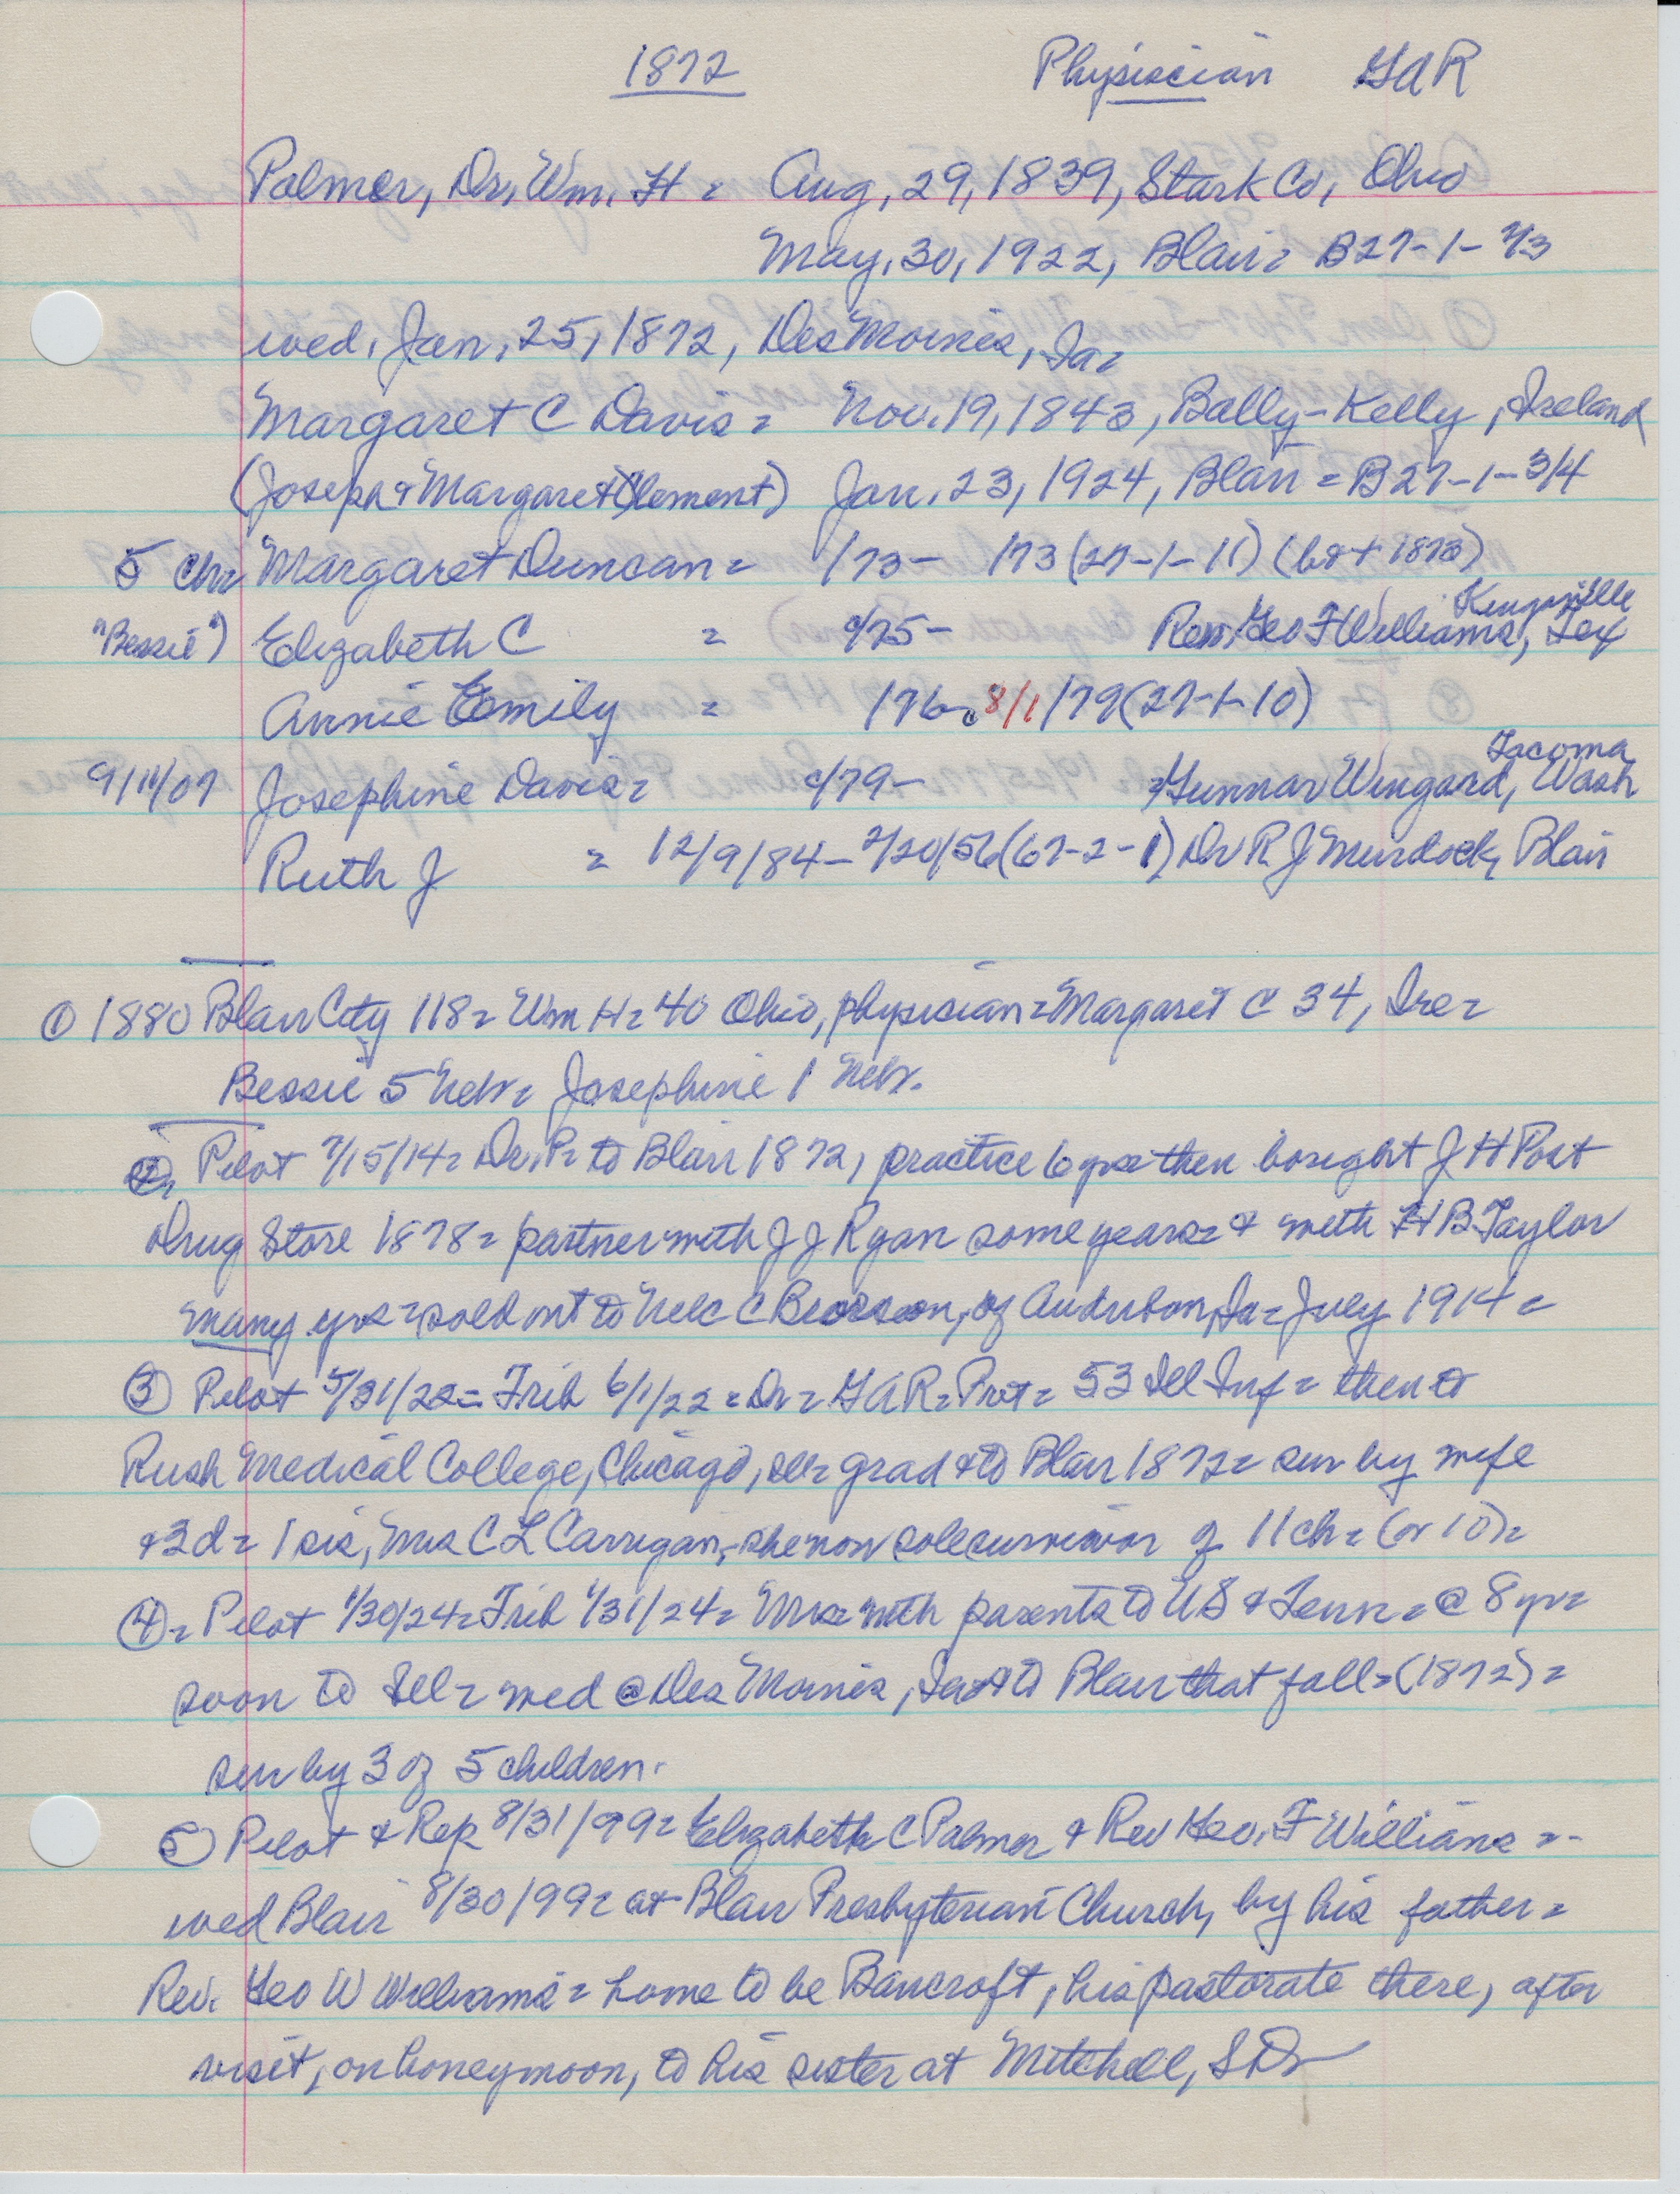 1872 Physiscian GAR
Palmer, Dr, Wm. H = Aug, 29, 1839, Stark Co, Ohio
May, 30, 1922, Blair = B27-1-
wed, Jan, 25, 1872, Des Moines, Ia=
Margaret C Davis = Nov. 19, 1843, Bally-Kelly, Ireland
(Joseph & Margaret Clement) Jan. 23, 1924, Blair = B27-1-3/4
5 Ch= Margaret Duncan = /73 - /73 (27-1-11)
"Bessie") Elizabeth C = c/75 - Rev. Geo F Williams, Tex
Annie Emily = /76. 8/1/79 (27-1-10)
Tacoma
9/11/07 Josephine Davis = c/79 - =Gunnar Wingard, Wash
Ruth J = 12/9/84 - /20/56 (67-2-1) Dr R J Murdock, Blair
① 1880 Blair City 118 = Wm H = 40 Ohio, physician = Margaret C 34, Ire =
Bessie 5 Nebr = Josephine 1 Nebr.
②= Pilot 7/15/14 = Dr. P = to Blair 1872, practice 6 yrs = then bought J H Post
Drug Store 1878 = partner with J J Ryan some years = & with H B Taylor
many yrs = sold out to C of Audubon, Ia = July 1914 =
③ Pilot 5/31/22 = Trib 6/1/22 = Dr = GAR = Prvt = 53 Ill Inf = then to
Rush Medical College, Chicago, Ill = grad & to Blair 1872 = sur by wife
& 3 d = 1 sis, Mrs C L Carrigan, she now sole survivor of 11 ch = (or 10) =
④= Pilot 1/30/24 = Trib 1/31/24 = Mrs = with parents to US & Tenn = @ 8 yr =
soon to Ill = wed @ Des Moines, Ia & to Blair that fall = (1872) =
sur by 3 of 5 children.
⑤ Pilot & Rep 8/31/99 = Elizabeth C Palmer & Rev Geo. F Williams = -
wed Blair 8/30/99 = at Blair Presbyterian Church, by his father =
Rev. Geo W Williams = home to be Bancroft, his pastorate there, after
visit, on honeymoon, to his sister at Mitchell, S D=